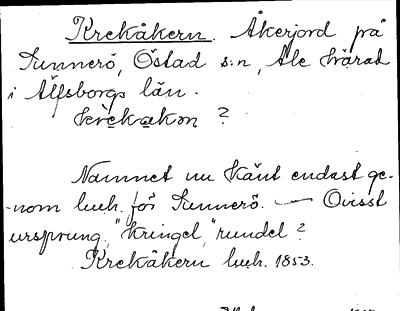 Krekåkern. Åkerjord på
Sunnerö, Östad s:n, Ale härad
i Älfsborgs län.
krekakɷn ?
Namnet nu känt endast ge-
-nom luh. för Sunnerö. — Ovisst
ursprung, "kringel", "rundel"?
Krekåkern luh. 1853.